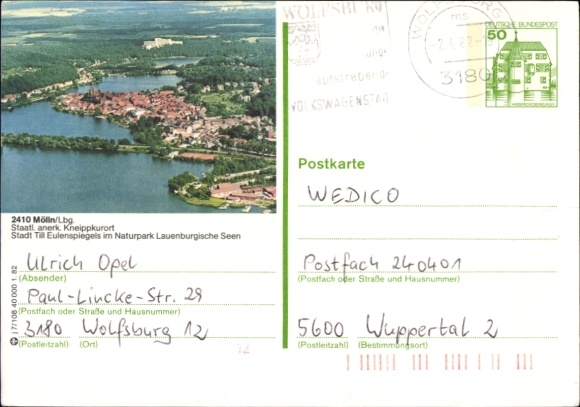 WOLFSBURG
aufstrebende
VOLKSWAGENSTADT
WOLFSBURG
3180
DEUTSCHE BUNDESPOST
50
Postkarte
WEDICO
Postfach 240401
(Postfach oder Straße und Hausnummer)
5600 Wuppertal 2
(Postleitzahl) (Bestimmungsort)
2410 Mölln/Lbg.
Staatl. anerk. Kneippkurort
Stadt Till Eulenspiegels im Naturpark Lauenburgische Seen
Ulrich Opel
(Absender)
Paul-Lincke-Str. 29
(Postfach oder Straße und Hausnummer)
3180 Wolfsburg 12
(Postleitzahl) (Ort)
12
i 7/108 40 000 1.82